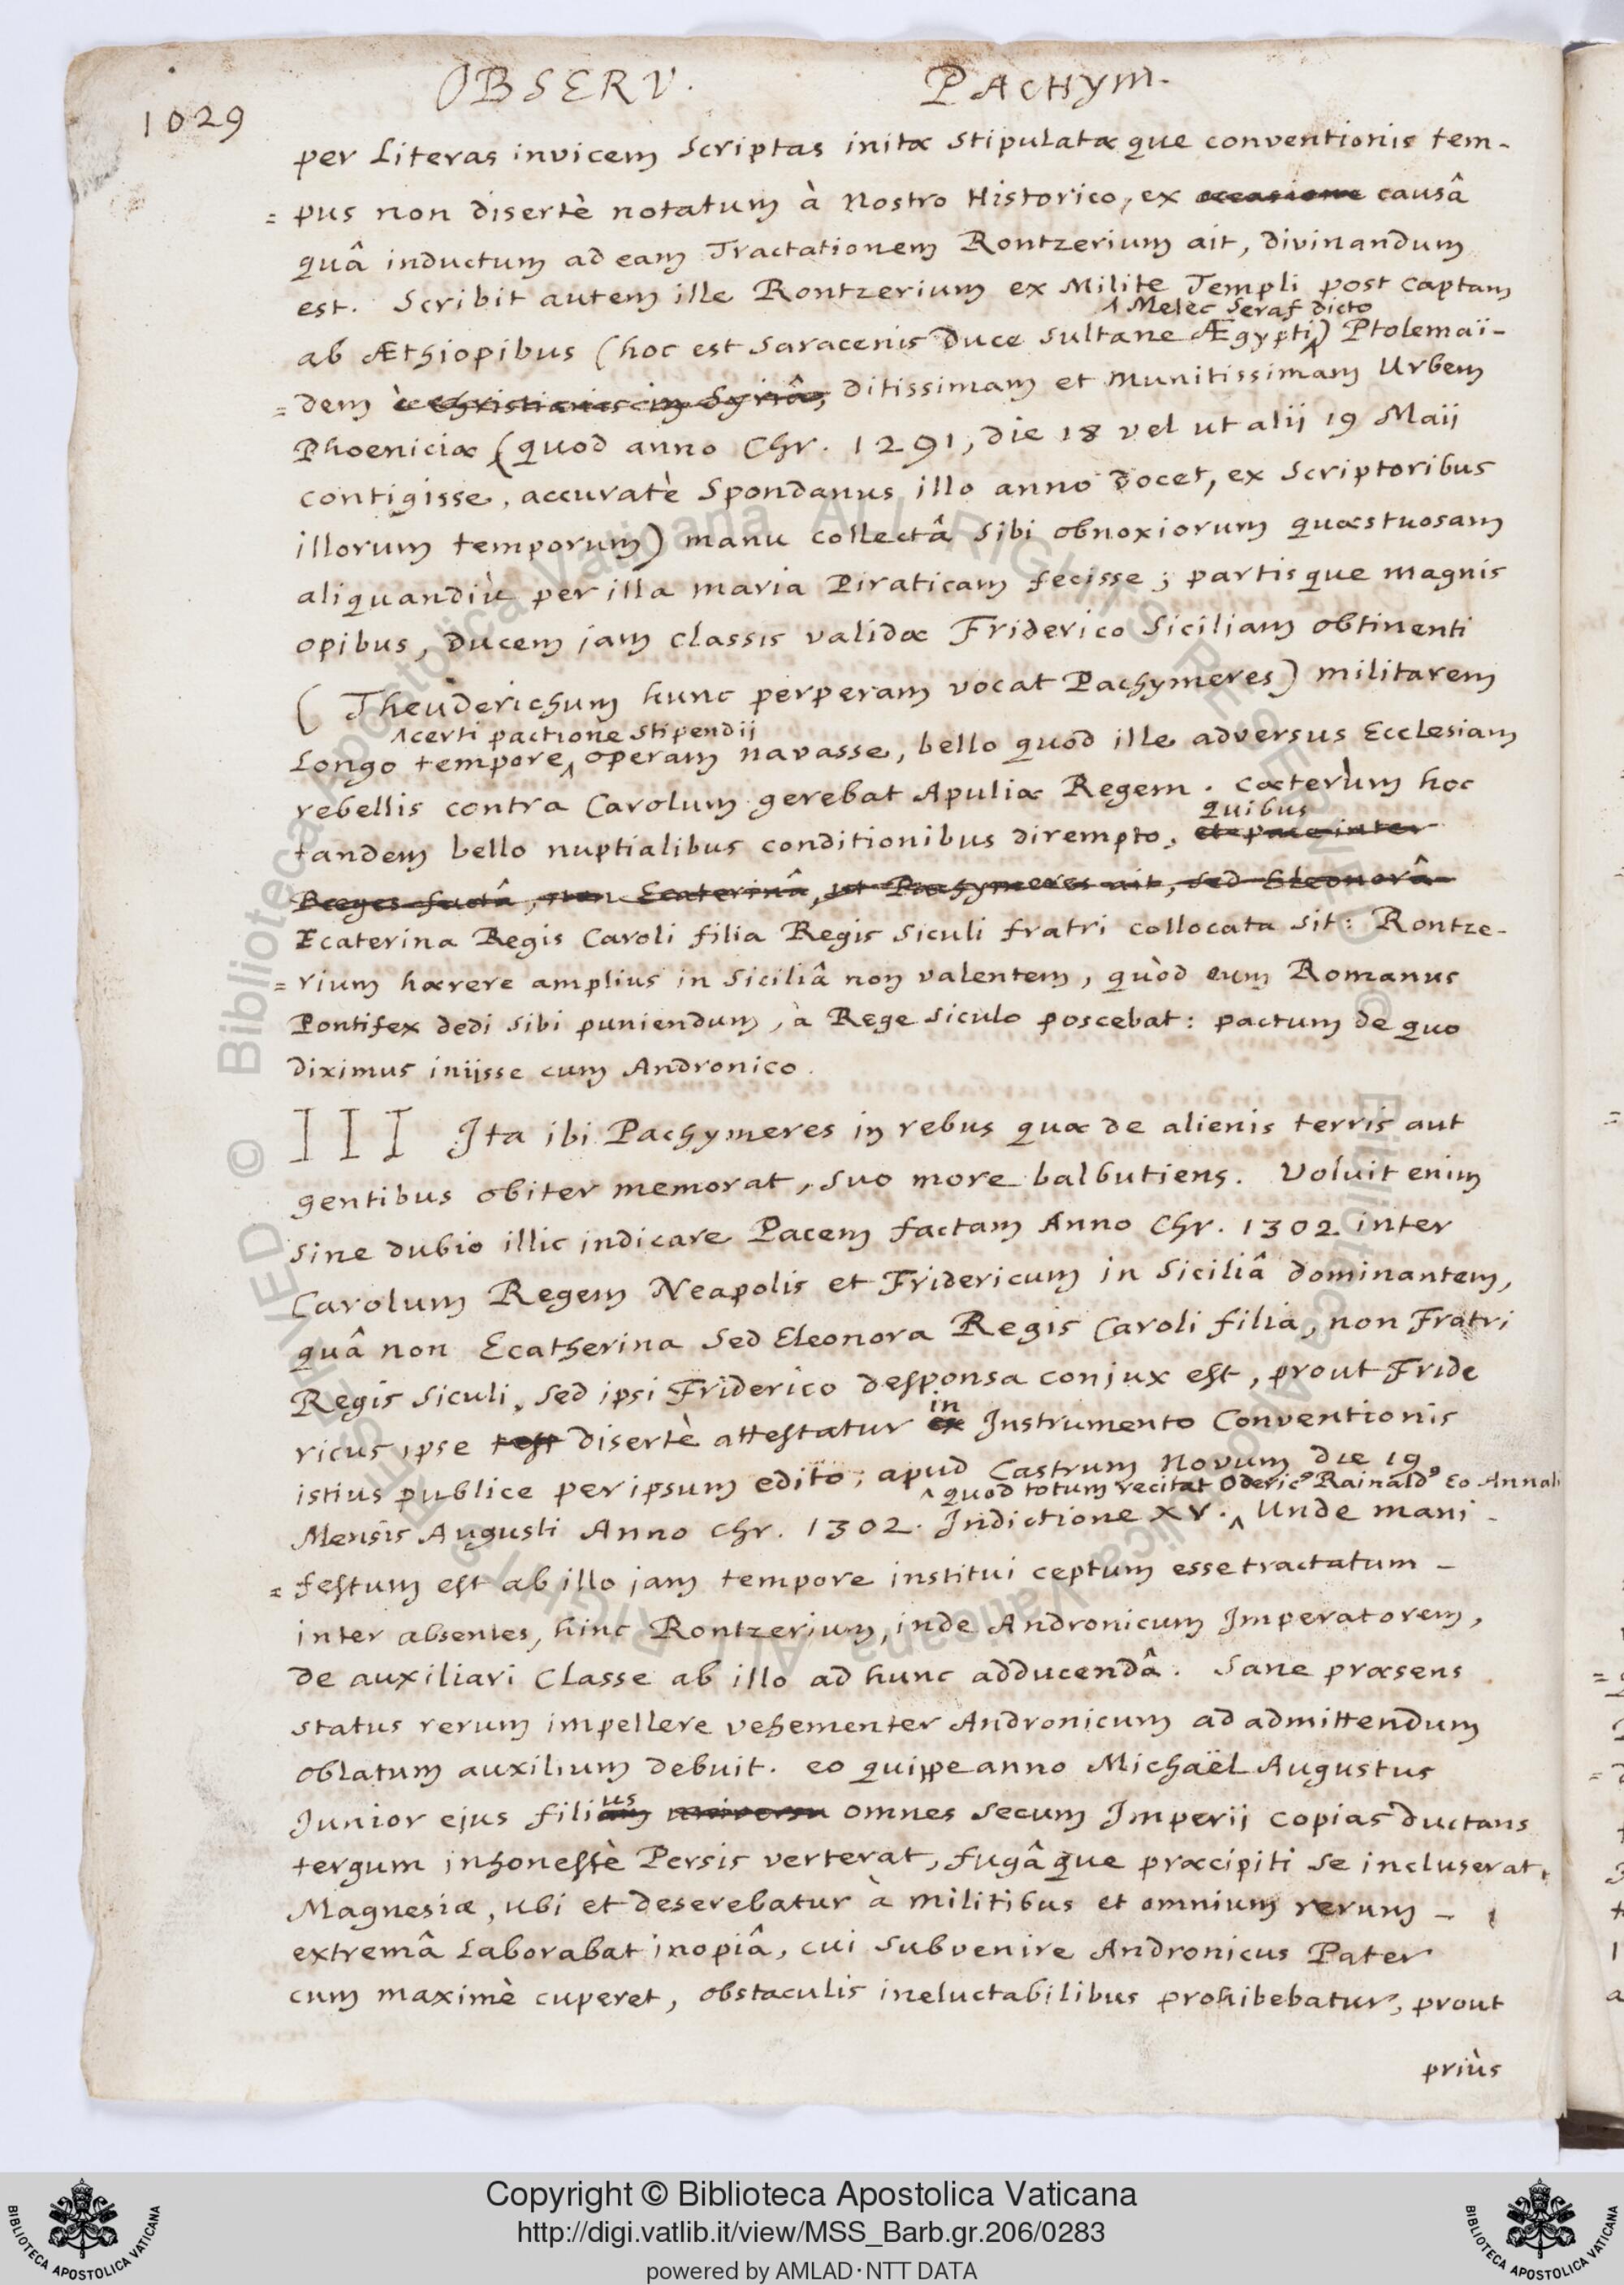 OBSERV. PACHYM.
1029
per Literas invicem scriptas initæ stipulatæ que conventionis tem-
= pus non disertè notatum à nostro Historico, ex occasione causâ
quâ inductum ad eam Tractationem Rontzerium ait, divinandum
est. Scribit autem ille Rontzerium ex Milite Templi post captam
^ Melec Seraf dicto
ab Æthiopibus (hoc est Saracenis Duce Sultane Ægypti^) Ptolemaï-
= dem è Christianis in Syriâ, ditissimam et munitissimam Urbem
Phoeniciæ (quod anno Chr. 1291, die 18 vel ut alii 19 Maii
contigisse, accuratè Spondanus illo anno docet, ex scriptoribus
illorum temporum) manu collectâ sibi obnoxiorum quæstuosam
aliquandiù per illa maria Piraticam fecisse; partisque magnis
opibus, Ducem jam classis validæ Friderico Siciliam obtinenti
(Theuderichum hunc perperam vocat Pachymeres) militarem
^certi pactione stipendij
Longo tempore^ operam navasse, bello quod ille adversus Ecclesiam
rebellis contra Carolum gerebat Apuliæ Regem. Cæterùm hoc
quibus
tandem bello nuptialibus conditionibus dirempto, et pace inter
Reges factâ, non Ecaterinâ, ut Pachymeres ait, sed Eleonorâ
Ecaterina Regis Caroli filia Regis siculi fratri collocata sit: Rontze-
= rium hærere amplius in Siciliâ non valentem, quòd eum Romanus
Pontifex dedi sibi puniendum, à Rege siculo poscebat: pactum de quo
diximus inijsse cum Andronico.
III Ita ibi Pachymeres in rebus quæ de alienis terris aut
gentibus obiter memorat, suo more balbutiens. Voluit enim
sine dubio illic indicare Pacem factam Anno Chr. 1302 inter
Carolum Regem Neapolis et Fridericum in Siciliâ dominantem,
quâ non Ecatherina sed Eleonora Regis Caroli filia, non Fratri
Regis Siculi, sed ipsi Friderico desponsa conjux est, prout Fride
in
ricus ipse test disertè attestatur ex Instrumento Conventionis
istius publice per ipsum edito; apud Castrum Novum die 19
^ quod totum recitat Oderic9 Rainald9 Eo Annali
Mensis Augusti Anno Chr. 1302. Indictione XV.^ Unde mani-
= festum est ab illo jam tempore institui ceptum esse tractatum -
inter absentes, hinc Rontzerium, inde Andronicum Imperatorem,
de auxiliari Classe ab illo ad hunc adducendâ. Sane præsens
status rerum impellere vehementer Andronicum ad admittendum
oblatum auxilium debuit. eo quippe anno Michaël Augustus
us
Junior ejus filium universu omnes secum Imperij copias ductans
tergum inhonestè Persis verterat, fugâque præcipiti se incluserat
Magnesiæ, ubi et deserebatur à militibus et omnium rerum -
extremâ laborabat inopiâ, cui subvenire Andronicus Pater
cum maximè cuperet, obstaculis ineluctabilibus prohibebatur, prout
priùs
© Biblioteca Apostolica Vaticana ALL RIGHTS RESERVED © Biblioteca Apostolica Vaticana ALL RIGHTS RESERVED
Copyright © Biblioteca Apostolica Vaticana
http://digi.vatlib.it/view/MSS_Barb.gr.206/0283
powered by AMLAD·NTT DATA
BIBLIOTECA APOSTOLICA VATICANA
BIBLIOTECA APOSTOLICA VATICANA